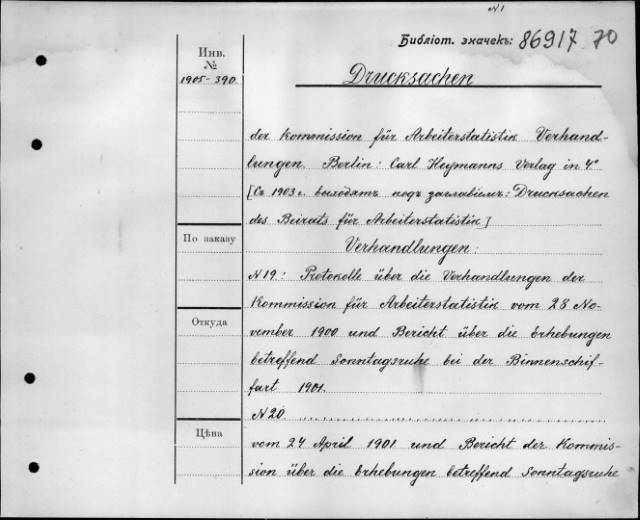 N1
Библіот. значекъ: 86917 70
Инв.
№
1905-390.
Drucksachen
der Kommission für Arbeiterstatistik Verhand-
lungen. Berlin: Carl Heymanns Verlag in 4°
[Съ 1903 г. выходятъ подъ заглавіемъ: Drucksachen
des Beirats für Arbeiterstatistik]
По заказу
Verhandlungen:
N 19: Protokolle über die Verhandlungen der
Kommission für Arbeiterstatistik vom 28 No-
Откуда
vember 1900 und Bericht über die Erhebungen
betreffend Sonntagsruhe bei der Binnenschif-
fart 1901.
N 20. ...............
Цѣна
vom 24 April 1901 und Bericht der Kommis-
sion über die Erhebungen betreffend Sonntagsruhe